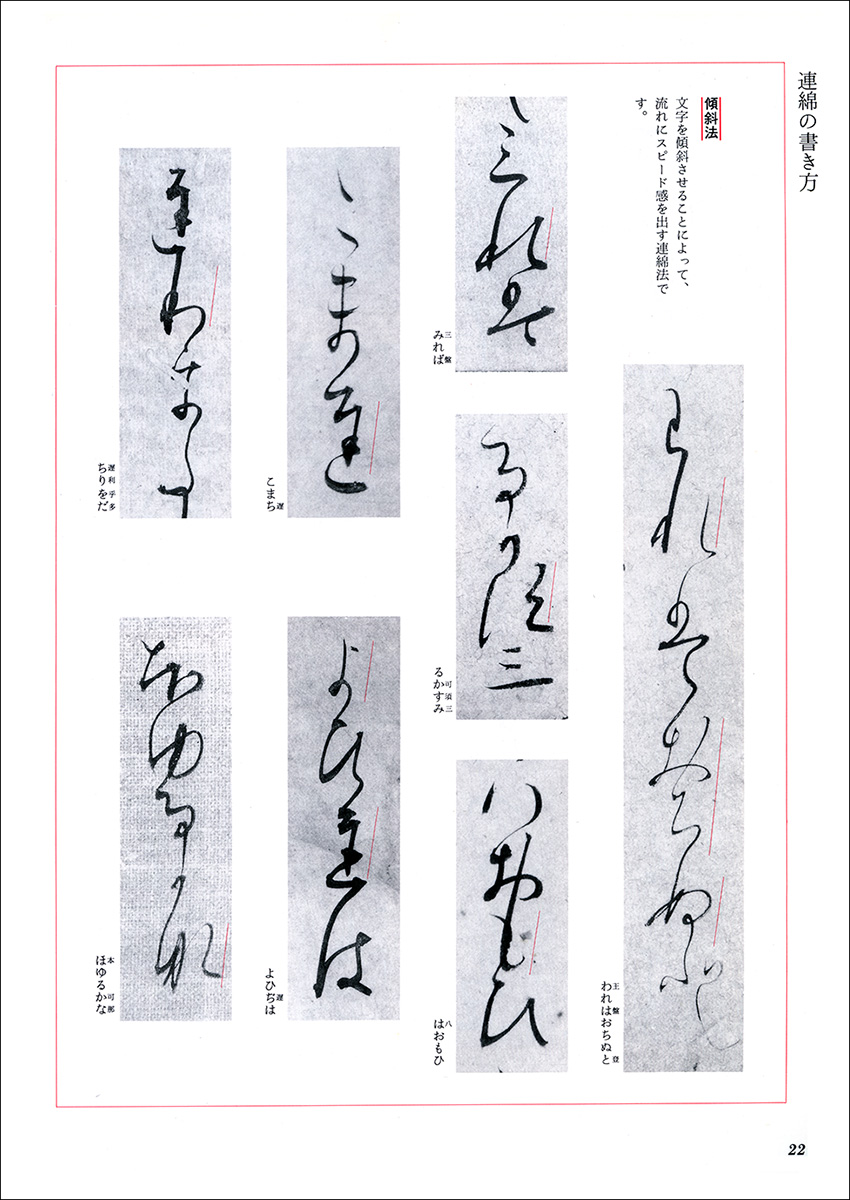 連綿の書き方
傾斜法
文字を傾斜させることによって、
流れにスピード感を出す連綿法で
す。
王盤登
われはおちぬと
三盤
みれば
可須三
るかすみ
八
はおもひ
遲
こまち
遲
よひぢは
遲利乎多
ちりをだ
本可那
ほゆるかな
22